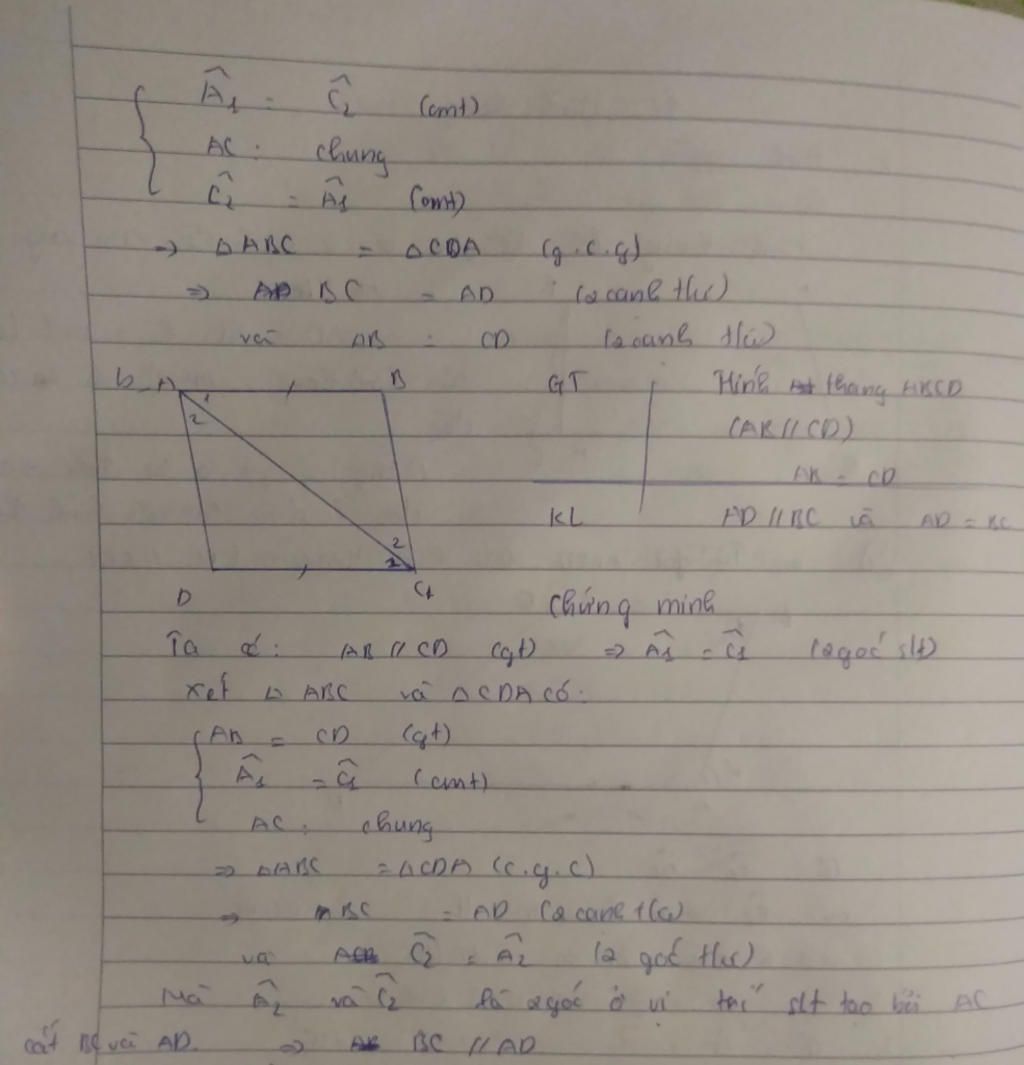 Â₁ = Ĉ₂ (cmt)
AC : chung
Ĉ₂ = Â₁ (cmt)
=> △ABC = △CDA (g.c.g)
=> BC = AD (2 cạnh t/ư)
và AB = CD (2 cạnh t/ư)
b_ A B
1
2
2
1
D C
GT Hình thang ABCD
(AB // CD)
AB = CD
KL AD // BC và AD = BC
Chứng minh
Ta có: AB // CD (gt) => Â₁ = Ĉ₁ (2 góc slt)
Xét △ ABC và △CDA có:
AB = CD (gt)
Â₁ = Ĉ₁ (cmt)
AC : chung
=> △ABC = △CDA (c.g.c)
=> BC = AD (2 cạnh t/ư)
và Ĉ₂ = Â₂ (2 góc t/ư)
Mà Â₂ và Ĉ₂ là 2 góc ở vị trí slt tạo bởi AC
cắt BC và AD. => BC // AD